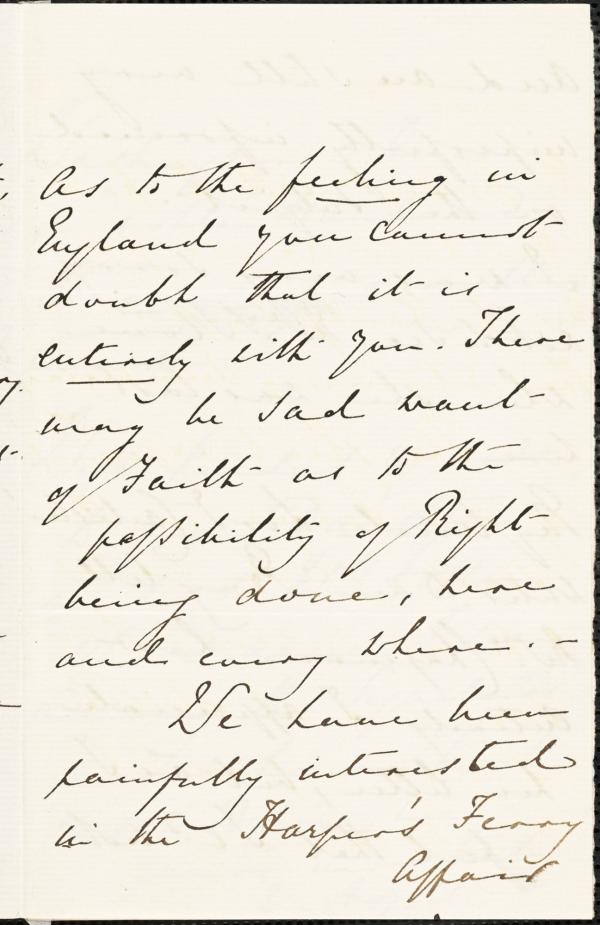 As to the feeling in
England you cannot
doubt that it is
entirely with you. There
may be sad want
of Faith as to the
possibility of Right
being done, here
and every where. -
We have been
painfully interested
in the Harper's Ferry
Affair